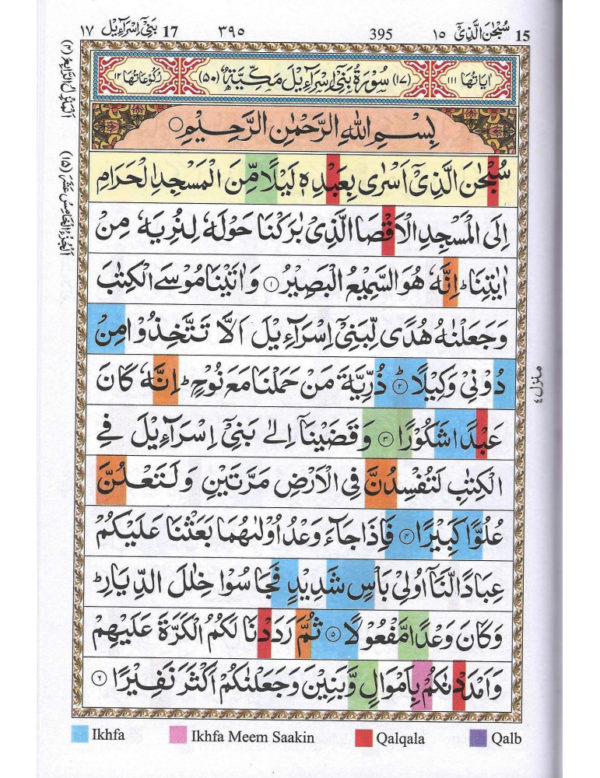 سُبْحٰنَ الَّذِيْٓ ١٥ 15
395
٣٩٥
بَنِيْٓ اِسْرَآءِيْل ١٧ 17
اٰيَاتُهَا ١١١
(١٧) سُوْرَةُ بَنِيْٓ اِسْرَآءِيْلَ مَكِّيَّةٌ (٥٠)
رُكُوْعَاتُهَا ١٢
بِسْمِ اللّٰهِ الرَّحْمٰنِ الرَّحِيْمِ
سُبْحٰنَ الَّذِيْٓ اَسْرٰى بِعَبْدِهٖ لَيْلًا مِّنَ الْمَسْجِدِ الْحَرَامِ
اِلَى الْمَسْجِدِ الْاَقْصَا الَّذِيْ بٰرَكْنَا حَوْلَهٗ لِنُرِيَهٗ مِنْ
اٰيٰتِنَا ؕ اِنَّهٗ هُوَ السَّمِيْعُ الْبَصِيْرُ ۝١ وَاٰتَيْنَا مُوْسَى الْكِتٰبَ
وَجَعَلْنٰهُ هُدًى لِّبَنِيْٓ اِسْرَآءِيْلَ اَلَّا تَتَّخِذُوْا مِنْ
دُوْنِيْ وَكِيْلًا ۝٢ؕ ذُرِّيَّةَ مَنْ حَمَلْنَا مَعَ نُوْحٍ ؕ اِنَّهٗ كَانَ
عَبْدًا شَكُوْرًا ۝٣ وَقَضَيْنَآ اِلٰى بَنِيْٓ اِسْرَآءِيْلَ فِي
الْكِتٰبِ لَتُفْسِدُنَّ فِي الْاَرْضِ مَرَّتَيْنِ وَلَتَعْلُنَّ
عُلُوًّا كَبِيْرًا ۝٤ فَاِذَا جَآءَ وَعْدُ اُوْلٰىهُمَا بَعَثْنَا عَلَيْكُمْ
عِبَادًا لَّنَآ اُولِيْ بَاْسٍ شَدِيْدٍ فَجَاسُوْا خِلٰلَ الدِّيَارِ ؕ
وَكَانَ وَعْدًا مَّفْعُوْلًا ۝٥ ثُمَّ رَدَدْنَا لَكُمُ الْكَرَّةَ عَلَيْهِمْ
وَاَمْدَدْنٰكُمْ بِاَمْوَالٍ وَّبَنِيْنَ وَجَعَلْنٰكُمْ اَكْثَرَ نَفِيْرًا ۝٦
اَلْمَنْزِلُ الرَّابِعُ (٤)
اَلْجُزْءُ الْخَامِسُ عَشَرَ (١٥)
منزل ٤
Ikhfa
Ikhfa Meem Saakin
Qalqala
Qalb